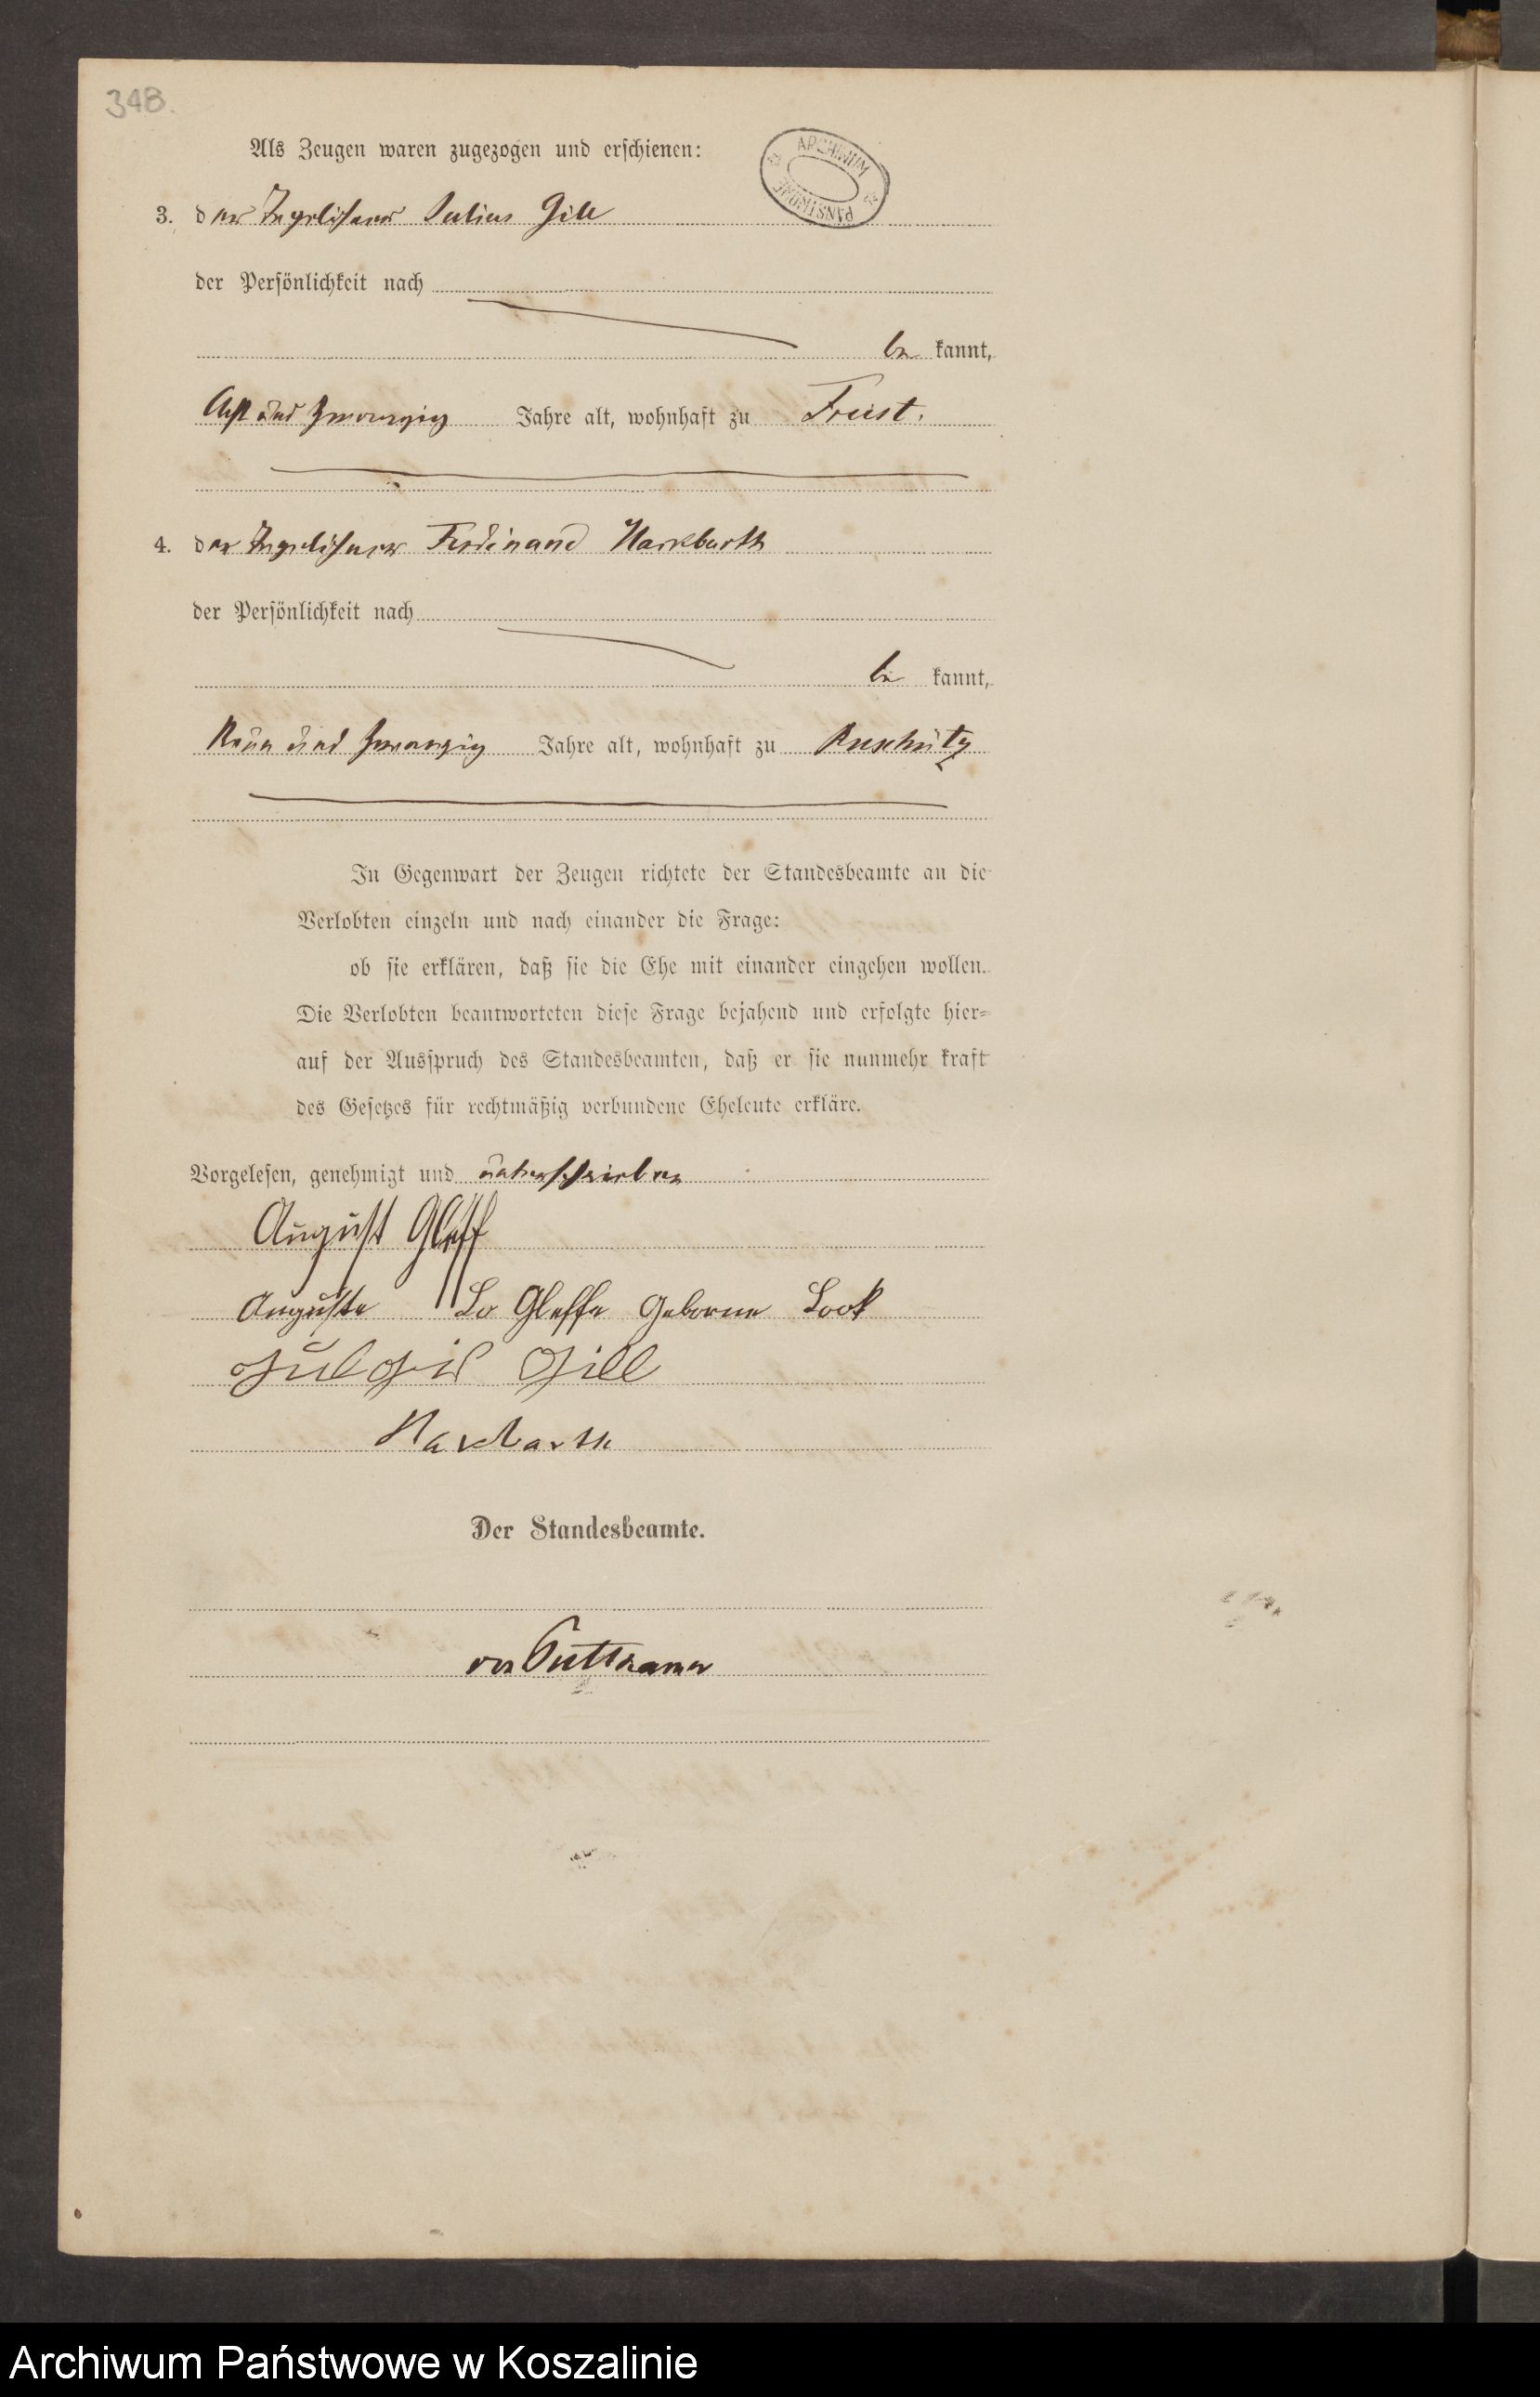 348.
Als Zeugen waren zugezogen und erschienen:
ARCHIWUM PAŃSTWOWE
3. der Tagelöhner Julius Gill
der Persönlichkeit nach
be kannt,
Acht und zwanzig Jahre alt, wohnhaft zu Freist.
4. der Tagelöhner Ferdinand Harkbarth
der Persönlichkeit nach
be kannt,
Neun und zwanzig Jahre alt, wohnhaft zu Puschütz
In Gegenwart der Zeugen richtete der Standesbeamte an die
Verlobten einzeln und nach einander die Frage:
ob sie erklären, daß sie die Ehe mit einander eingehen wollen.
Die Verlobten beantworteten diese Frage bejahend und erfolgte hier=
auf der Ausspruch des Standesbeamten, daß er sie nunmehr kraft
des Gesetzes für rechtmäßig verbundene Eheleute erkläre.
Vorgelesen, genehmigt und unterschrieben
August Gleff
Auguste Gleffe Geborne Look
Gill
Harkbarth
Der Standesbeamte.
von Puttkamer
Archiwum Państwowe w Koszalinie